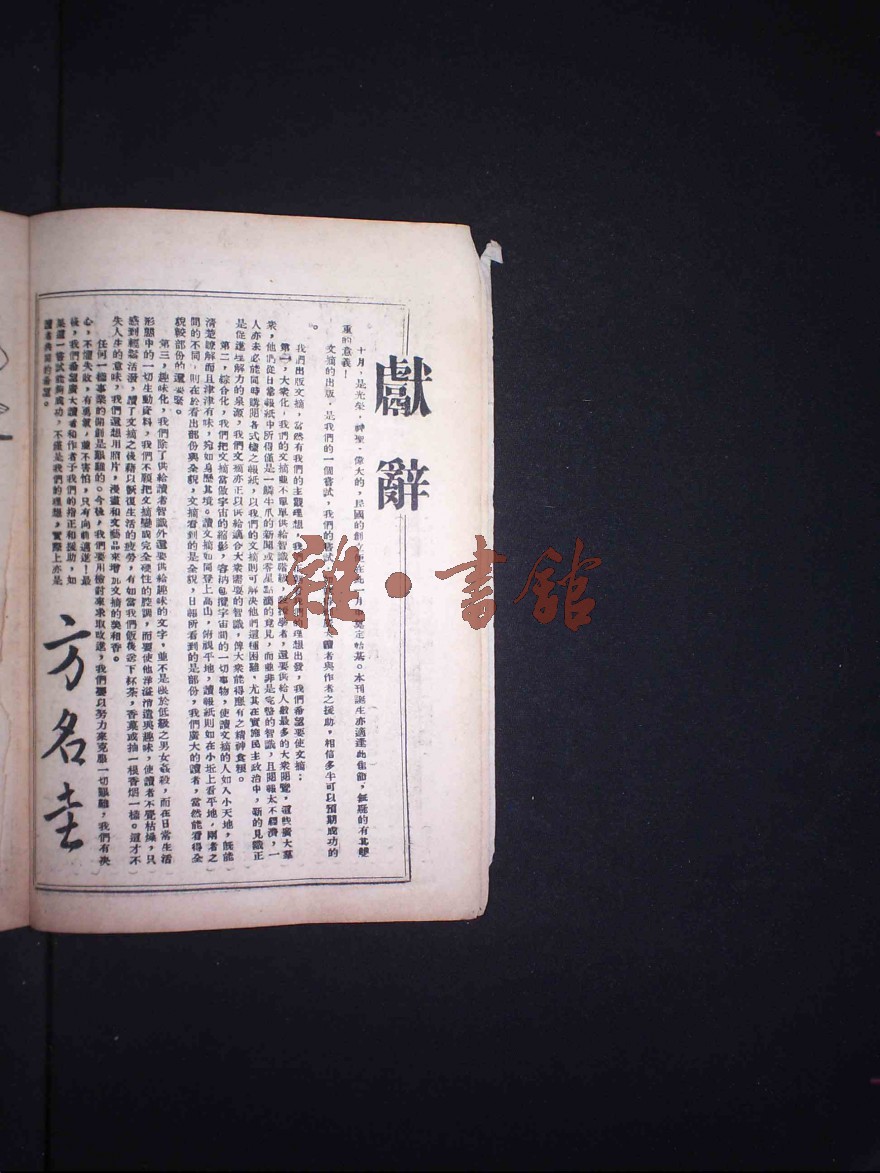 獻辭
十月,是光榮,神聖,偉大的,民國的創立便在此一月中奠定帖基。本刊誕生亦適逢此佳節,無疑的有其雙
重的意義!
文摘的出版,是我們的一個嘗試,我們的嘗試,如能獲廣大讀者與作者之援助,相信多半可以預期成功的
。
我們出版文摘,當然有我們的主觀理想,我們的理想出發,我們希望要使文摘:
第一,大衆化,我們的文摘並不單單供給智識階級,經濟學者,還要供給人數最多的大衆閱覽,這些廣大羣
衆,他們從日常報紙中所得僅是一鱗牛爪的新聞或零星點滴的意見,而並非是完整的智識,且閱報太不經濟,一
人亦未必能同時購閱各式樣之報紙,以我們的文摘則可解決他們這種困難,尤其在實施民主政治中,新的見識正
是促進理解力的泉源,我們文摘亦正以供給適合大衆需要的智識,俾大衆能得應有之精神食糧。
第二,綜合化,我們把文摘當做宇宙的縮影,容納包攬宇宙間的一切事物,使讀文摘的人如入小天地,旣能
清楚瞭解而且津津有味,宛如身歷其境。讀文摘如同登上高山,俯視平地,讀報紙則如在小坵上看平地,兩者之
間的不同,則在於看出部份與全貌,文摘看到的是全貌,日報所看到的是部份,我們廣大的讀者,當然能看得全
貌較部份的還要緊。
第三,趣味化,我們除了供給讀者智識外還要供給趣味的文字,並不是限於低級之男女姦殺,而在日常生活
形態中的一切生動資料,我們不願把文摘變成完全硬性的腔調,而要使他洋溢淸遠與趣味,使讀者不覺枯燥,只
感到輕鬆活潑,讀了文摘之後藉以恢復生活的疲勞,有如當我們飯後念下杯茶,香菓或抽一根香烟一樣。這才不
失人生的意味,我們還想用照片,漫畫和文藝品來增加文摘的美和香。
任何一種事業的開創是艱難的。今後,我們要用檢討來求取改進,我們要以努力來克服一切艱難,我們有決
心,不懼失敗,有勇氣,並不害怕,只有向前邁進!最
後,我們希望廣大讀者和作者予我們的指正和援助,如
果這一嘗試能夠成功,不僅是我們的理想,實際上亦是
讀者與期的希望。
方名圭
雜·書館